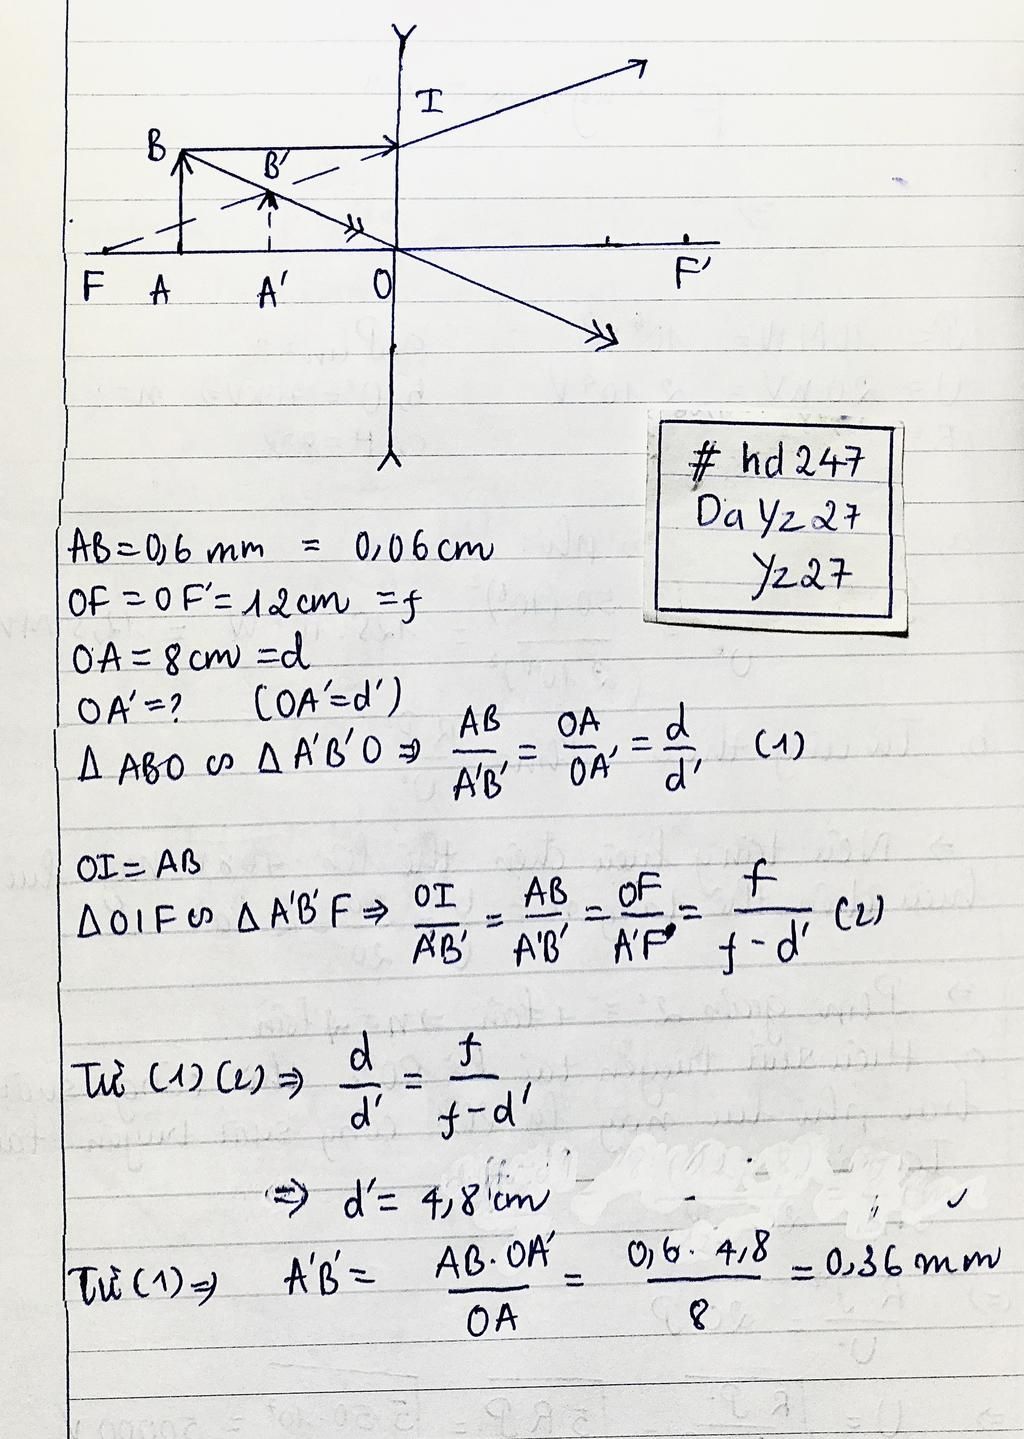 I
B
B'
F
A
A'
O
F'
# hd247
Da Yz27
Yz27
AB = 0,6 mm = 0,06 cm
OF = OF' = 12 cm = f
OA = 8 cm = d
OA' = ? (OA' = d')
Δ ABO ∽ Δ A'B'O ⇒ AB/A'B' = OA/OA' = d/d' (1)
OI = AB
Δ OIF ∽ Δ A'B'F ⇒ OI/A'B' = AB/A'B' = OF/A'F = f/f-d' (2)
Từ (1) (2) ⇒ d/d' = f/f-d'
⇒ d' = 4,8 cm
Từ (1) ⇒ A'B' = AB.OA'/OA = 0,6.4,8/8 = 0,36 mm